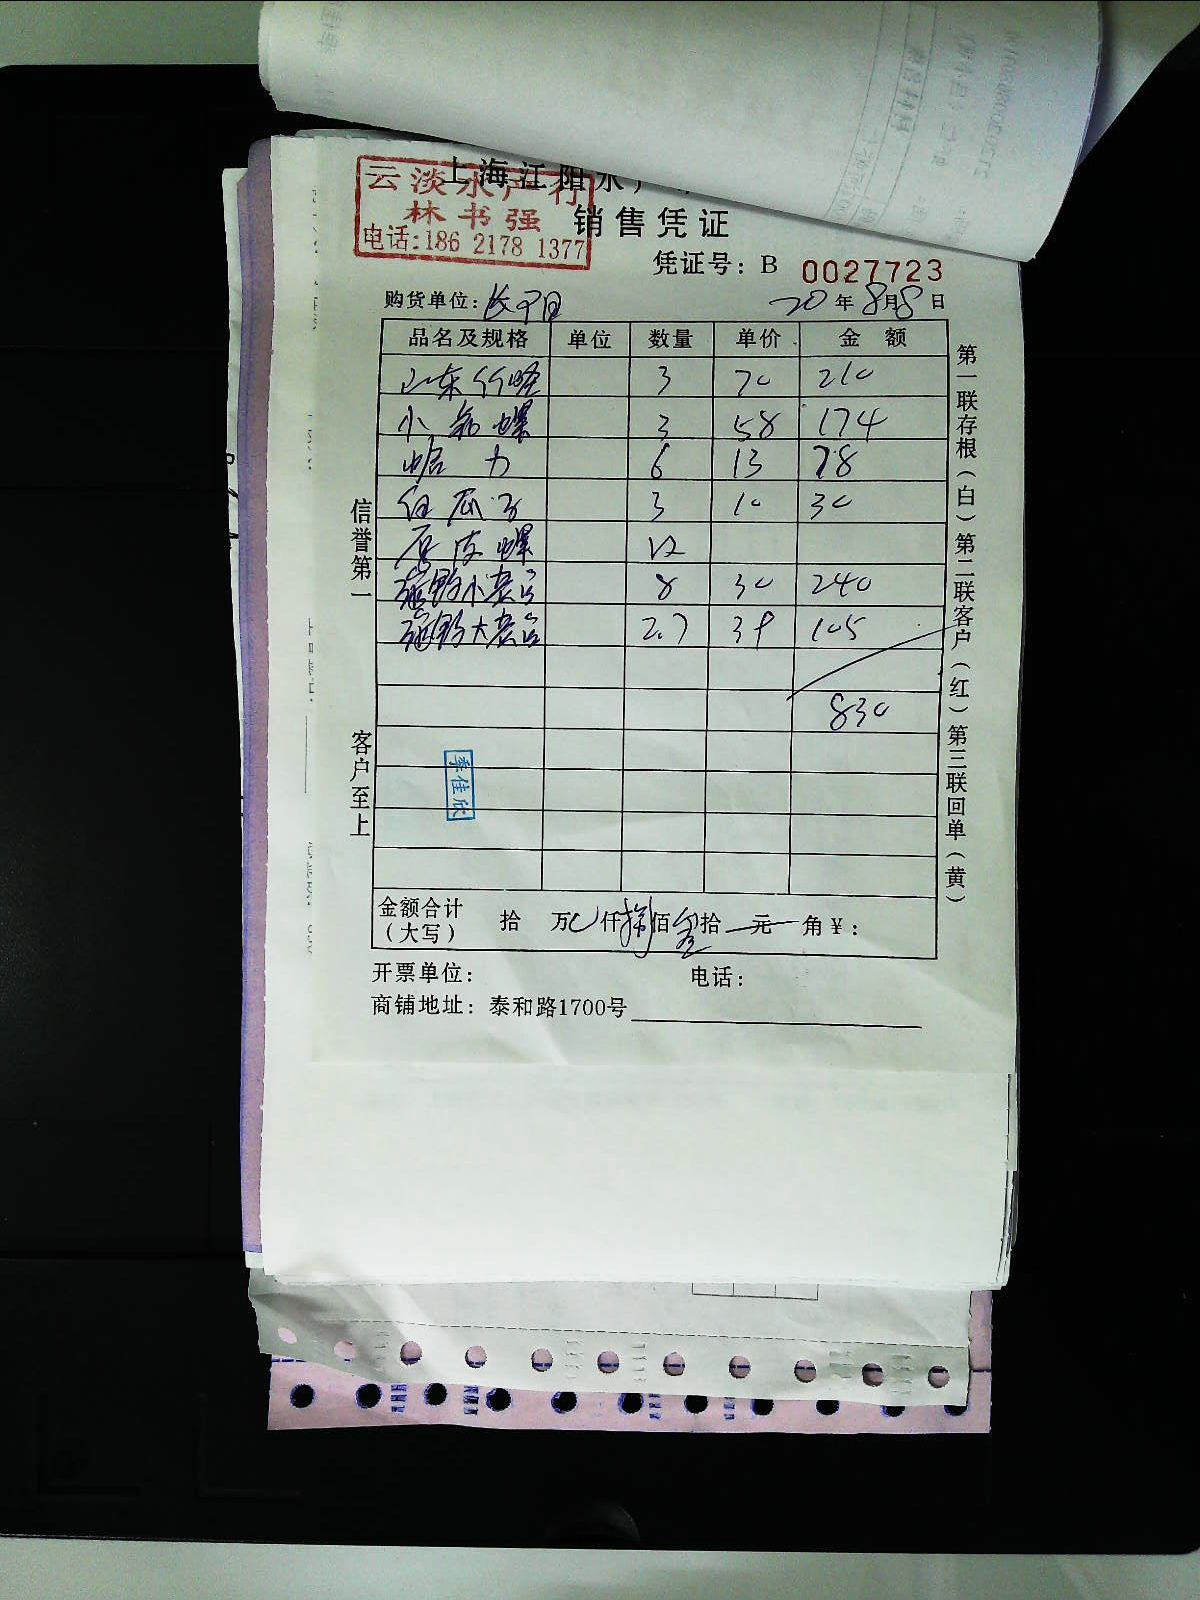 上海江阳水产
云淡水产行
林书强
电话:186 2178 1377
销售凭证
凭证号: B 0027723
购货单位:
20年8月8日
品名及规格 单位 数量 单价 金额
山东竹蛏 3 70 210
小 螺 3 58 174
蛤力 6 13 78
白瓜子 3 10 30
石皮螺 12
8 30 240
2.7 39 105
830
季佳欣
金额合计(大写) 拾 万 仟捌佰叁拾 元 角 ¥:
开票单位: 电话:
商铺地址: 泰和路1700号
信誉第一 客户至上
第一联存根(白) 第二联客户(红) 第三联回单(黄)